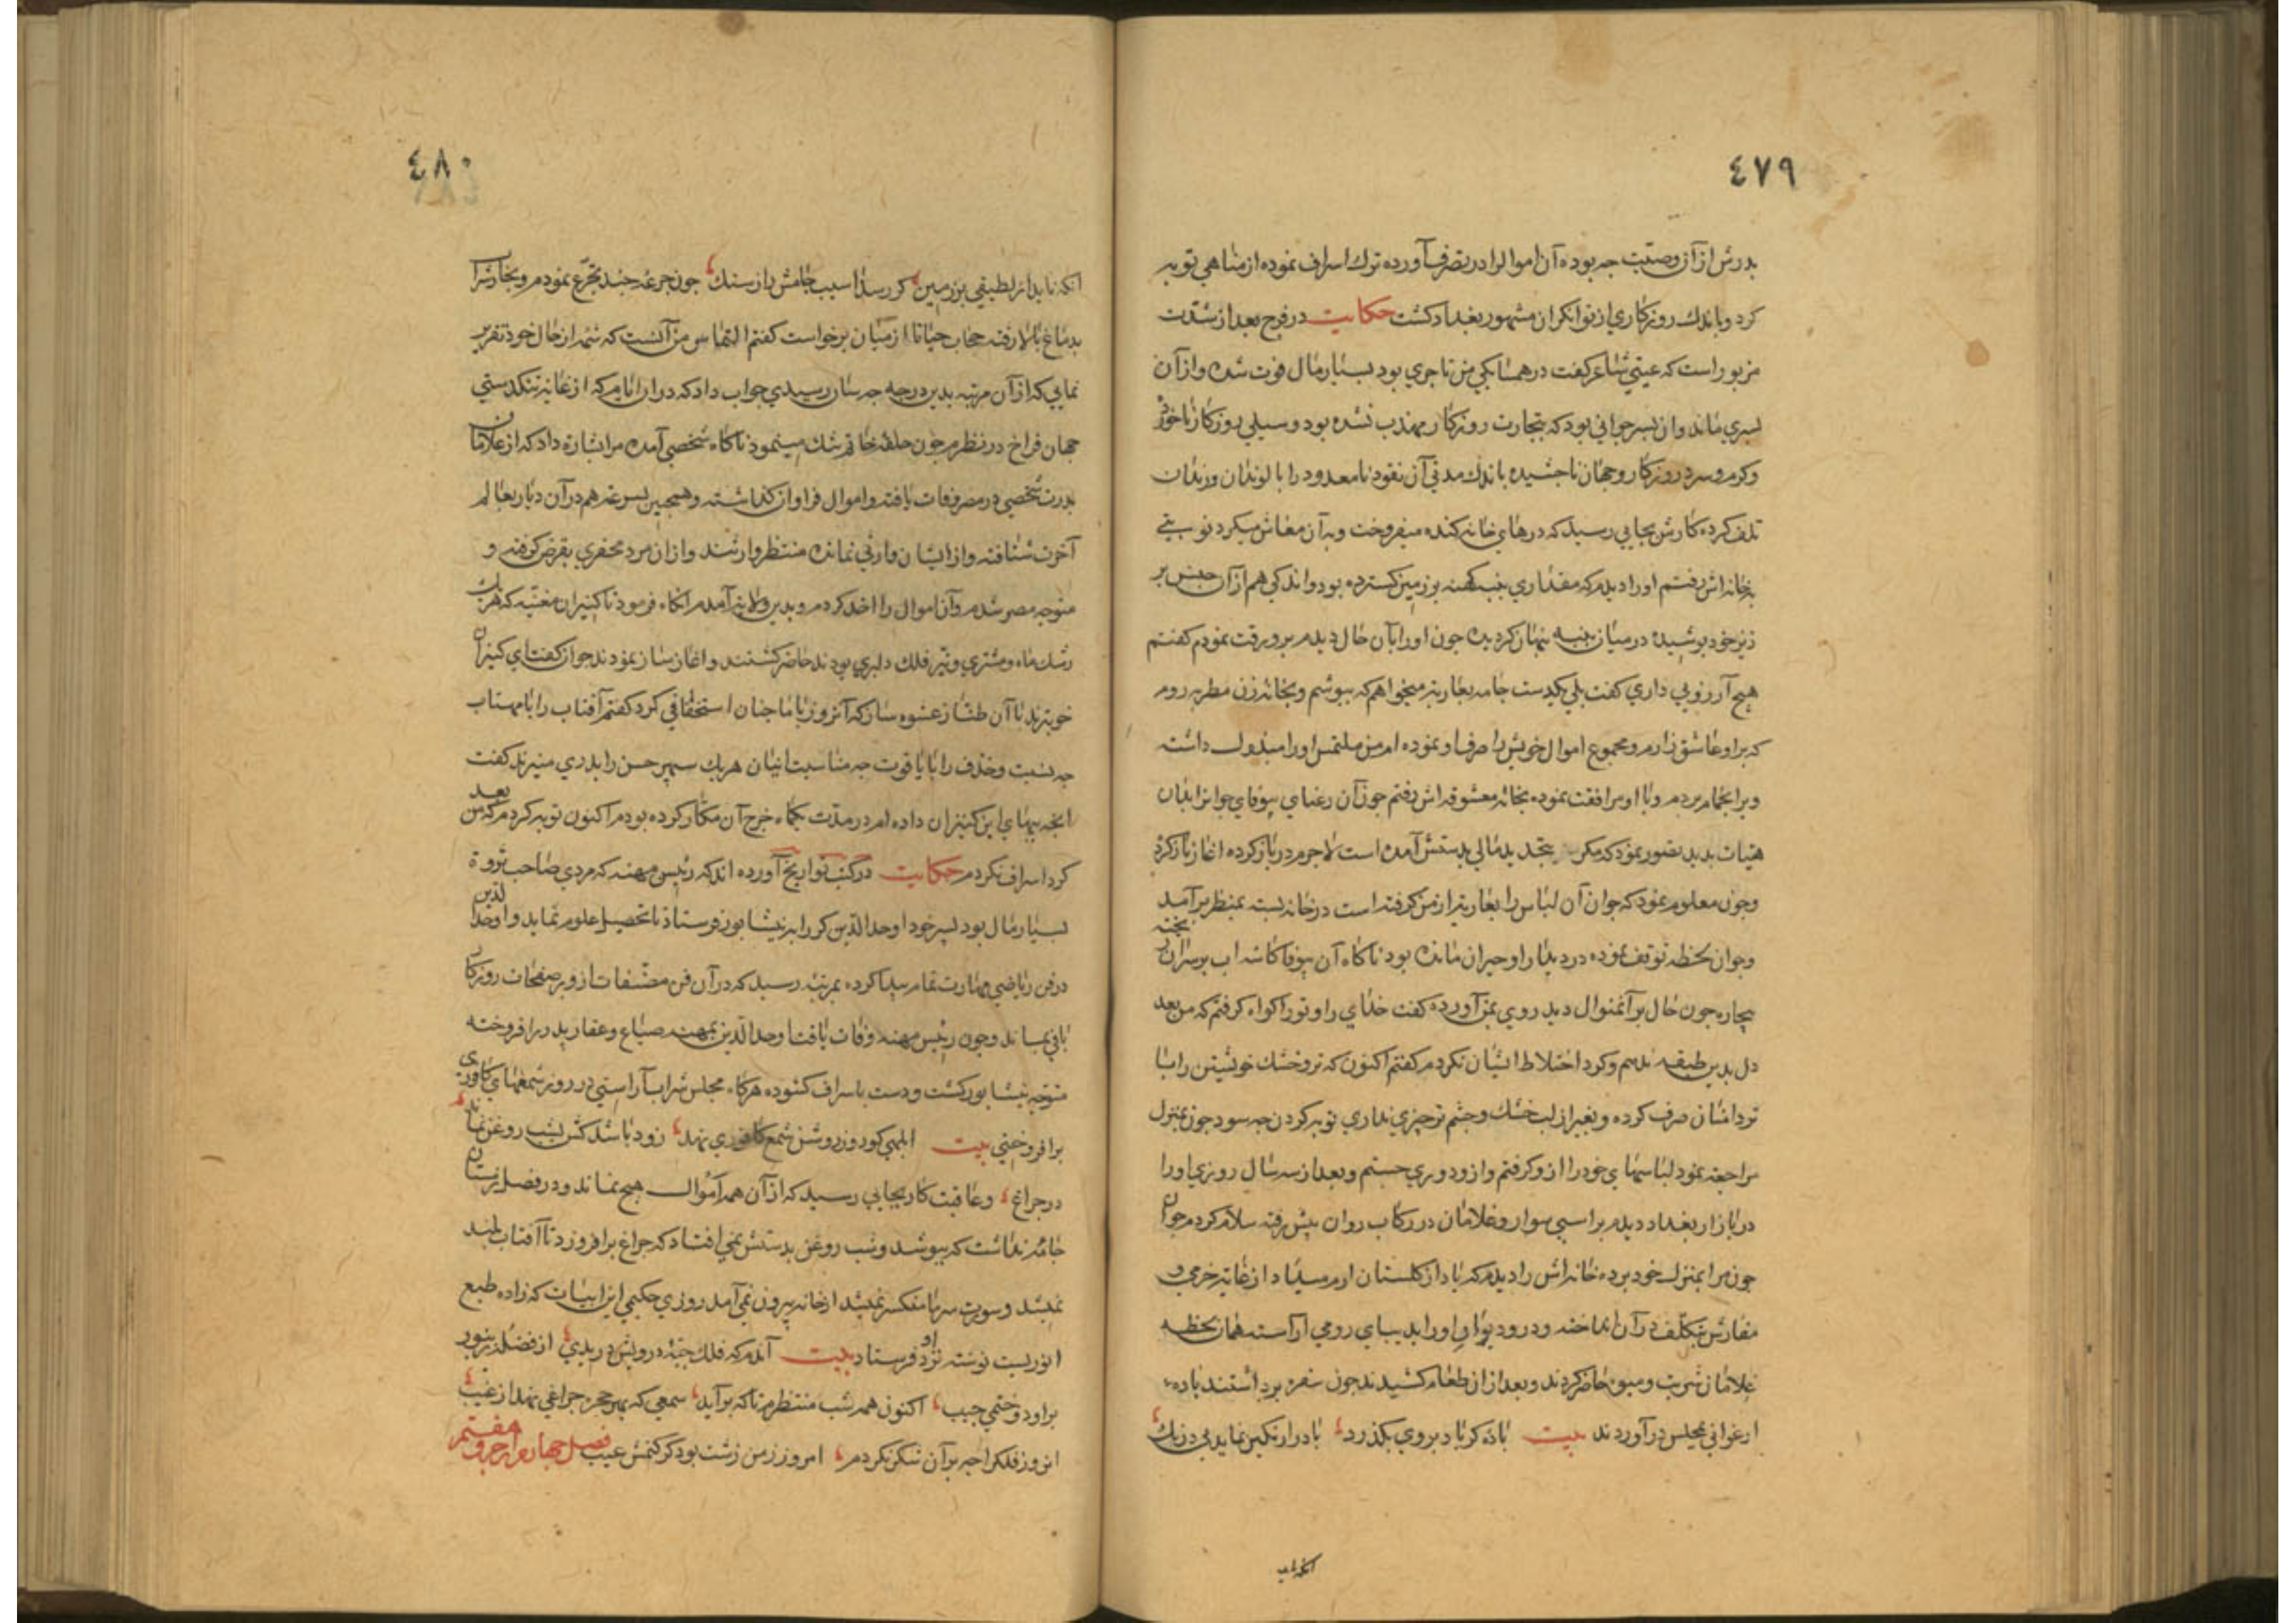 ٤٧٩
پدرش از آن وصیت چه بوده آن اموال را در تصرف آورده ترك اسراف نموده از مناهي توبه
كرد و باندك روزكاري از توانكران مشهور بغداد كشت حكايت در فرج بعد از شدت
مزبور است كه عيتي شاعر كفت در همسايكي من تاجري بود بسيار مال فوت شده و از آن
پسري ماند و ان پسر جواني بود كه بتجارت روزكار مهذب نشده بود و سيلي روزكار ناخورده
و كرم و سرد روزكار و جهان ناچشيده باندك مدتي آن نقود نامعدود را با لوندان و رندان
تلف كرده كارش بجايي رسيد كه درهاي خانه كنده ميفروخت و به آن معاش ميكرد نوبتي
بخانه اش رفتم او را ديدم كه مقداري پنبه كهنه بر زمين كسترده بود و اندكي هم از آن جنس بر
زبر خود پوشيده در ميان پنبه پنهان كرديده چون او را بآن حال ديدم برو رقت نمودم كفتم
هيچ آرزويي داري كفت بلي يكدست جامه بعاريه ميخواهم كه بپوشم و بخانه زن مطربه روم
كه بر او عاشق زارم و مجموع اموال خويش را صرف او نموده ام من ملتمس او را مبذول داشته
و برا بحمام بردم و با او مرافقت نموده بخانه معشوقه اش رفتم چون آن رعناي بيوفاي جوانرا بدان
هيات بديد تصور نمود كه مكر بتجديد مالي بدستش آمده است لاجرم در باز كرده اغاز ناز كرد
و چون معلوم نمود كه جوان آن لباس را بعاريه از من كرفته است در خانه بسته بمنظر برآمد
و جوان لحظه توقف نموده در ديدار او حيران مانده بود ناكاه آن بيوفا كاسه اب بر سر آن بخته
بيچاره چون حال بر آنمنوال ديد روي بمن آورده كفت خداي را و تو را كواه كرفتم كه من بعد
دل بدين طبقه ندهم و كرد اختلاط ايشان نكردم كفتم اكنون كه تر و خشك خويشتن را با
تردامنان صرف كرده و بغير از لب خشك و چشم تر چيزي نداري توبه كردن چه سود چون بمنزل
مراجعه نمود لباسهاي خود را از و كرفتم و از و دوري جستم و بعد از سه سال روزي او را
در بازار بغداد ديدم بر اسبي سوار و غلامان در ركاب روان پيش رفته سلام كردم جوان
چون مرا بمنزل خود برده خانه اش را ديدم كه ياد از كلستان ارم ميداد از غايه خرمي و
مفارش بتكلف در آن انداخته و در و ديوار او را بديباي رومي اراسته همان لحظه
غلامان شربت و ميوه حاضر كردند و بعد از ان طعام كشيدند چون سفره برداشتند باده
ارغواني بمجلس در آوردند بيت باده كر باد بروي بكذرد باد را رنكين نمايد بي درنك
٤٨٠
انكه نايد از لطيفي بر زمين كر رسد اسيب جامش را ز سنك چون جرعه چند تجرع نمودم و بخارش را
بدماغ بالا رفته حجاب حيانا از ميان برخواست كفتم التماس من آنست كه شمه از حال خود تقرير
نمايي كه از آن مرتبه بدين درجه چه سان رسيدي جواب داد كه دران ايام كه از غايه تنكدستي
جهان فراخ در نظرم چون حلقه خاتم تنك مينمود ناكاه شخصي آمده مرا بشارة داد كه از غلامان
پدرت شخصي در مصر وفات يافته و اموال فراوان كذاشته و همچنين پسر عمه هم در آن ديار بعالم
آخرت شتافته و از ايشان وارثي نمانده منتظر وارثند و ازان مرد محقري بقرض كرفته و
متوجه مصر شدم و آن اموال را اخذ كردم و بدين ولايه آمدم انكاه فرمود تا كنيزان مغنيه كه هريك
رشك ماه و مشتري و تير فلك دلبري بودند حاضر كشتند و اغاز ساز نمودند جوان كفت اي كنيزان
خوبترند يا آن طناز عشوه ساز كه آنروز با ما چنان استخفافي كرد كفتم آفتاب را با مهتاب
چه نسبت و خذف را با ياقوت چه مناسبت اينان هريك سپهر حسن را بدري منيرند كفت
انچه ببهاي اين كنيزان داده ام در مدت يكماه خرج آن مكار كرده بودم اكنون توبه كردم كه من بعد
كرد اسراف نكردم حكايت در كتب تواريخ آورده اند كه رئيس مهنه كه مردي صاحب ثروة
بسيار مال بود پسر خود اوحد الدين كر را به نيشابور فرستاد تا تحصيل علوم نمايد و اوحد الدين
در فن رياضي مهارت تمام پيدا كرده بمرتبه رسيد كه در آن فن مصنفات از و بر صفحات روزكار
باقي بماند و چون رئيس مهنه وفات يافت اوحد الدين بمهنه ضياع و عقار پدر را فروخته
متوجه نيشابور كشت و دست باسراف كشوده هركاه مجلس شراب آراستي در روز شمعهاي كافوري
برافروختي بيت ابلهي كو روز روشن شمع كافوري نهد زود باشد كش بشب روغن نماند
در چراغ و عاقبت كار بجايي رسيد كه از آن همه اموال هيچ نماند و در فصل زمستان
جامه نداشت كه بپوشد و شب روغن بدستش نمي افتاد كه چراغ برافروزد تا آفتاب بلند
نميشد و سورت سرما منكسر نميشد از خانه بيرون نمي آمد روزي حكيمي اين ابيات كه زاده طبع
انوريست نوشته نزد او فرستاد بيت آندم كه فلك جبه درويش دريدي از فضله زنبور
برا و دوختمي جيب اكنون همه شب منتظرم تا كه برآيد شمعي كه بهر حجره چراغي نهد از غيب
انروز فلك را چه برآن شكر نكردم امروز ز من زشت بود كر كنمش عيب فصل چهارم از حرف هفتم